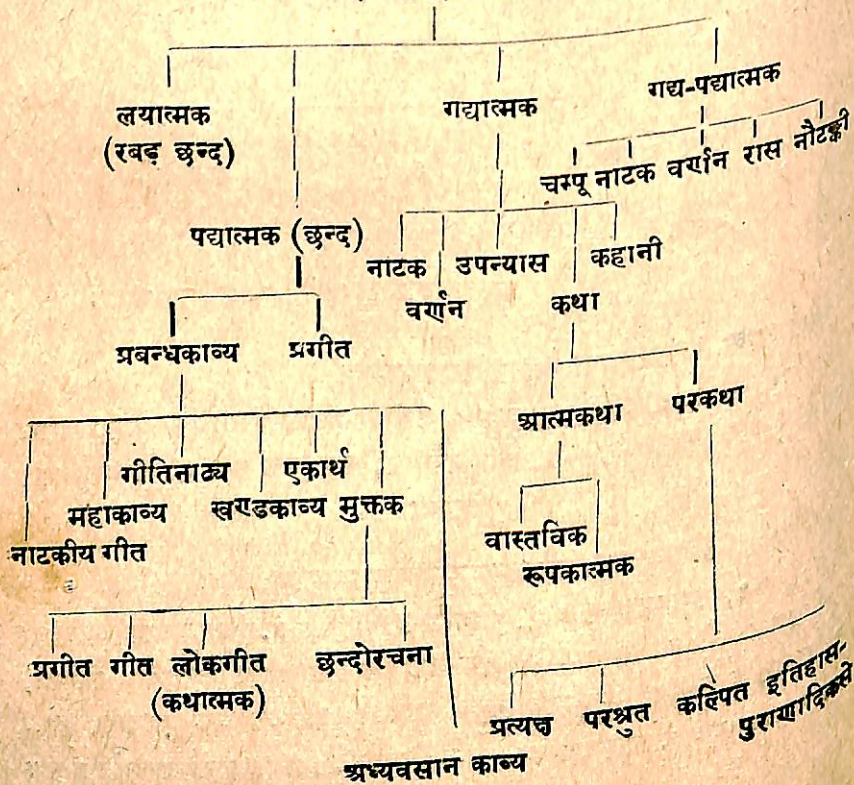 लयात्मक
(रबड़ छन्द)
गद्यात्मक
गद्य-पद्यात्मक
चम्पू नाटक वर्णन रास नौटङ्की
पद्यात्मक (छन्द)
नाटक उपन्यास कहानी
वर्णन कथा
प्रबन्धकाव्य प्रगीत
आत्मकथा परकथा
गीतिनाट्य एकार्थ
महाकाव्य खण्डकाव्य मुक्तक
नाटकीय गीत
वास्तविक
रूपकात्मक
प्रगीत गीत लोकगीत छन्दोरचना
(कथात्मक)
प्रत्यक्ष परश्रुत कल्पित इतिहास-
पुराणादिकसे
अध्यवसान काव्य